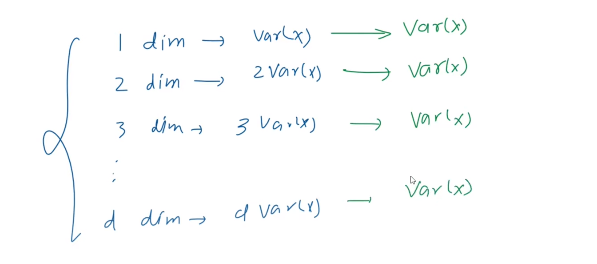 1 dim → var(x) → Var(x)
2 dim → 2 Var(x) → Var(x)
3 dim → 3 Var(x) → Var(x)
⋮
d dim → d Var(x) → Var(x)